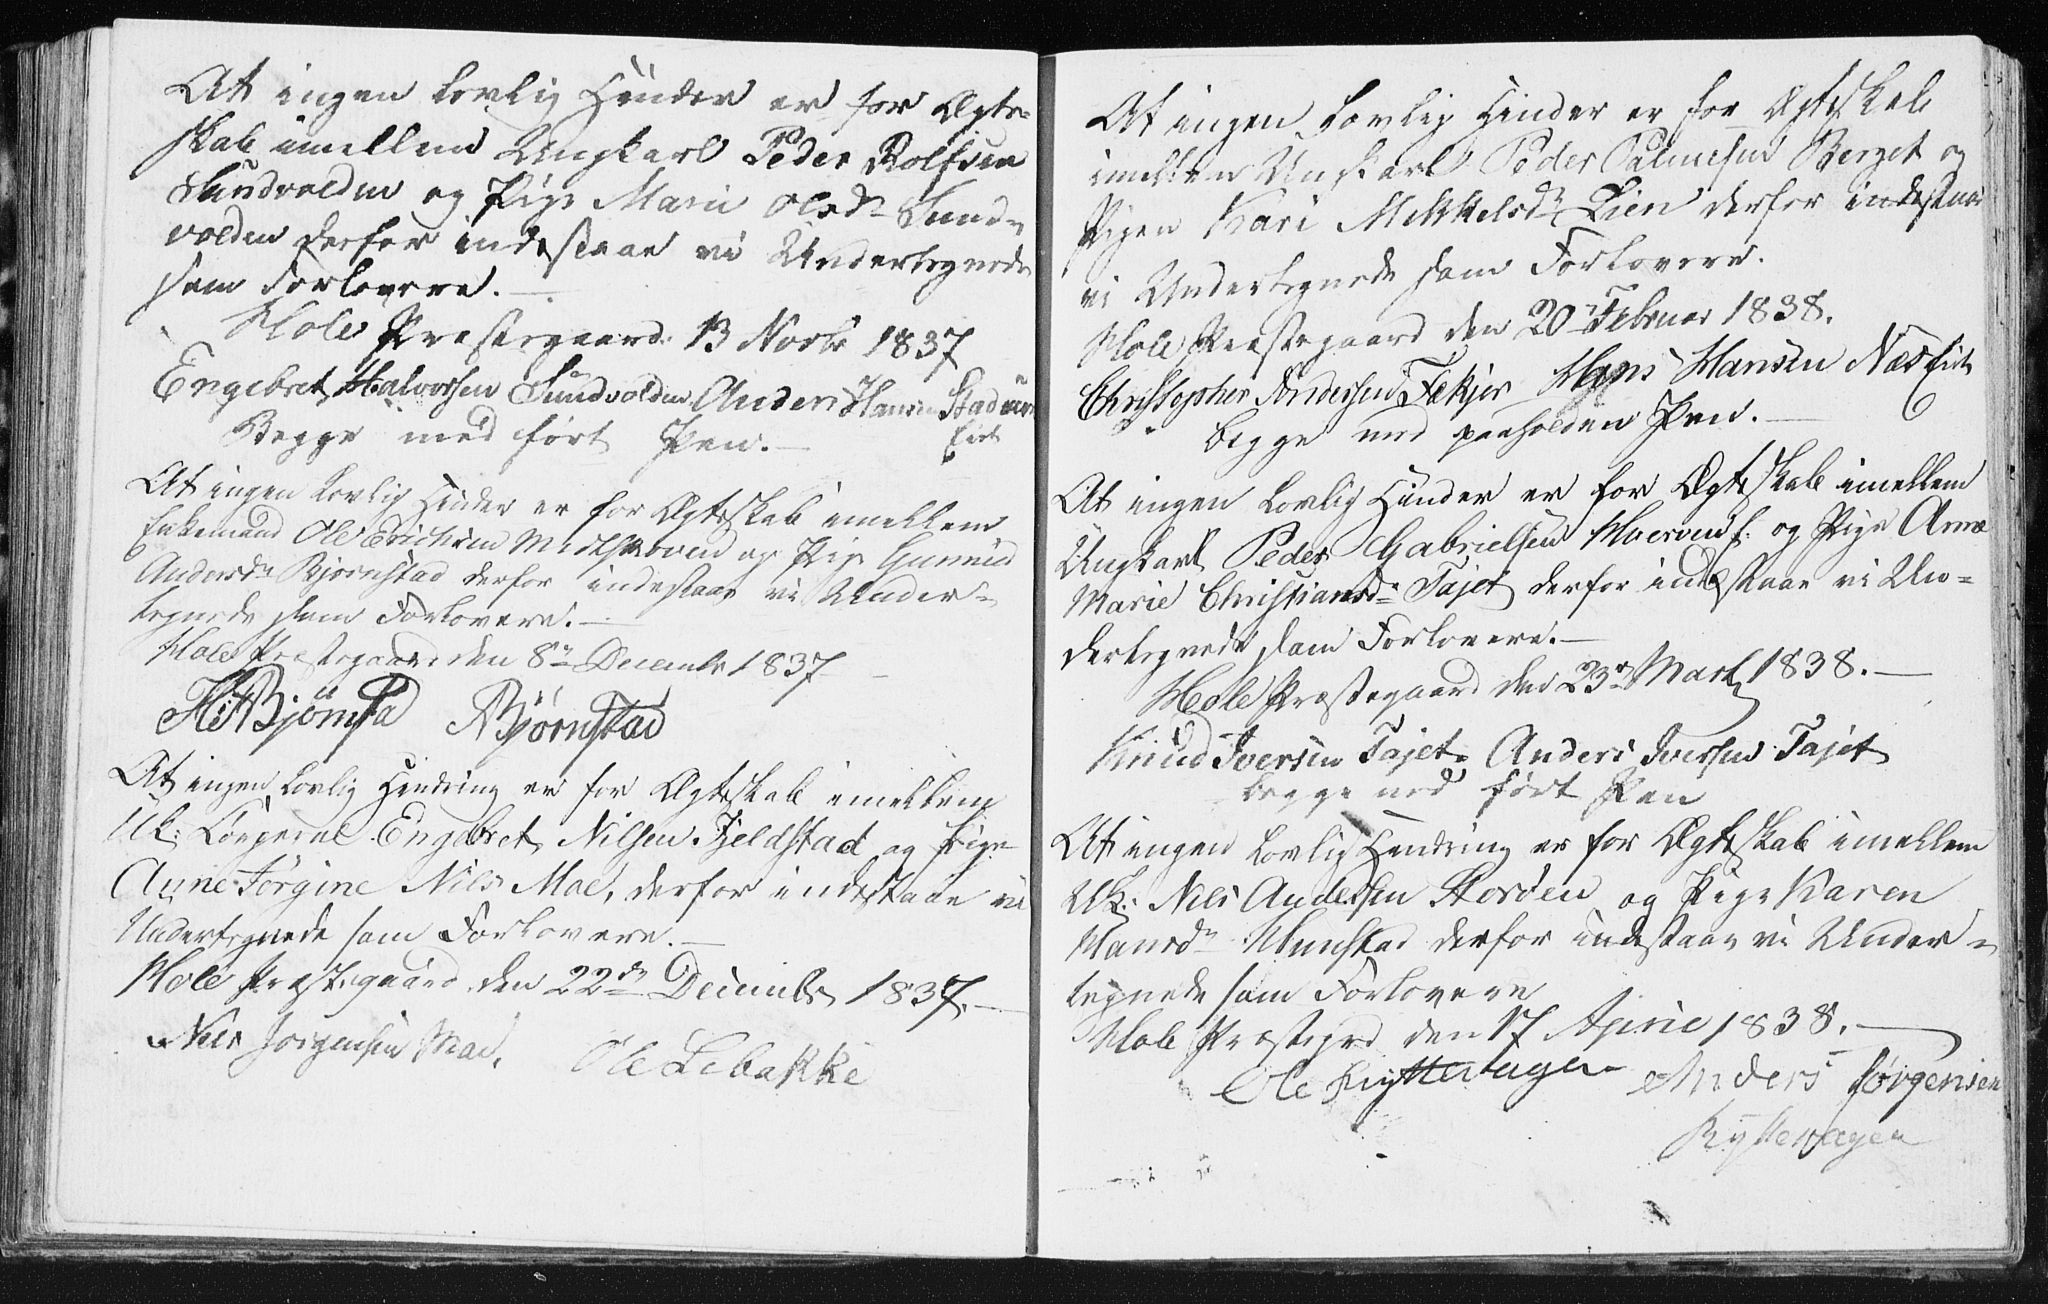 At ingen Lovlig Hinder er for Ægte-
skab imellem Ungkarl Peder Rolfsen
Sundvolden og Pige Marie Olsdr Sund-
volden derfor indestaar vi Undertegnede
som Forlovere.
Hole Præstegaard 13 Novbr 1837
Engebret Halvorsen Sundvolden Anders Hansen Stadum
Begge med ført Pen. Eiet
At ingen Lovlig Hinder er for Ægteskab imellem
Enkemand Ole Erichsen Midtskoven og Pige Gunnild
Andersdr Bjørnstad derfor indestaar vi Under-
tegnede som Forlovere.
Hole Præstegaard den 8de Decembr 1837
Bjørnstad
At ingen Lovlig Hindring er for Ægteskab imellem
Uk: Engebret Nilsen Fjeldstad og Pige
Anne Jørgine Nils Moe, derfor indestaar vi
Undertegnede som Forlovere.
Hole Præstegaard den 22de Decembr 1837.
Nils Jørgensen Moe, Ole Lebakke
At ingen Lovlig Hinder er for Ægteskab
imellem Unkarl Peder Palmesen Berget og
Pigen Kari Mikkelsdr Lien derfor indestaar
vi Undertegnede som Forlovere.
Hole Præstegaard den 20 Februar 1838.
Christopher Andersen Fekjer Hans Hansen Næs Eiet
begge med paaholden Pen.
At ingen Lovlig Hinder er for Ægteskab imellem
Ungkarl Peder Gabrielsen og Pige Anne
Marie Christiansdr Tajet derfor indestaar vi Un-
dertegnede som Forlovere.
Hole Præstegaard den 23de Marts 1838.
Knud Iversen Tajet. Anders Iversen Tajet
begge med ført Pen
At ingen Lovlig Hindring er for Ægteskab imellem
Uk: Nils Andersen Storøen og Pige Karen
Hansdr Hunstad derfor indestaar vi Under-
tegnede som Forlovere
Hole Præstegrd den 17 April 1838.
Ole Rytteragen Anders Jørgensen
Rytteragen